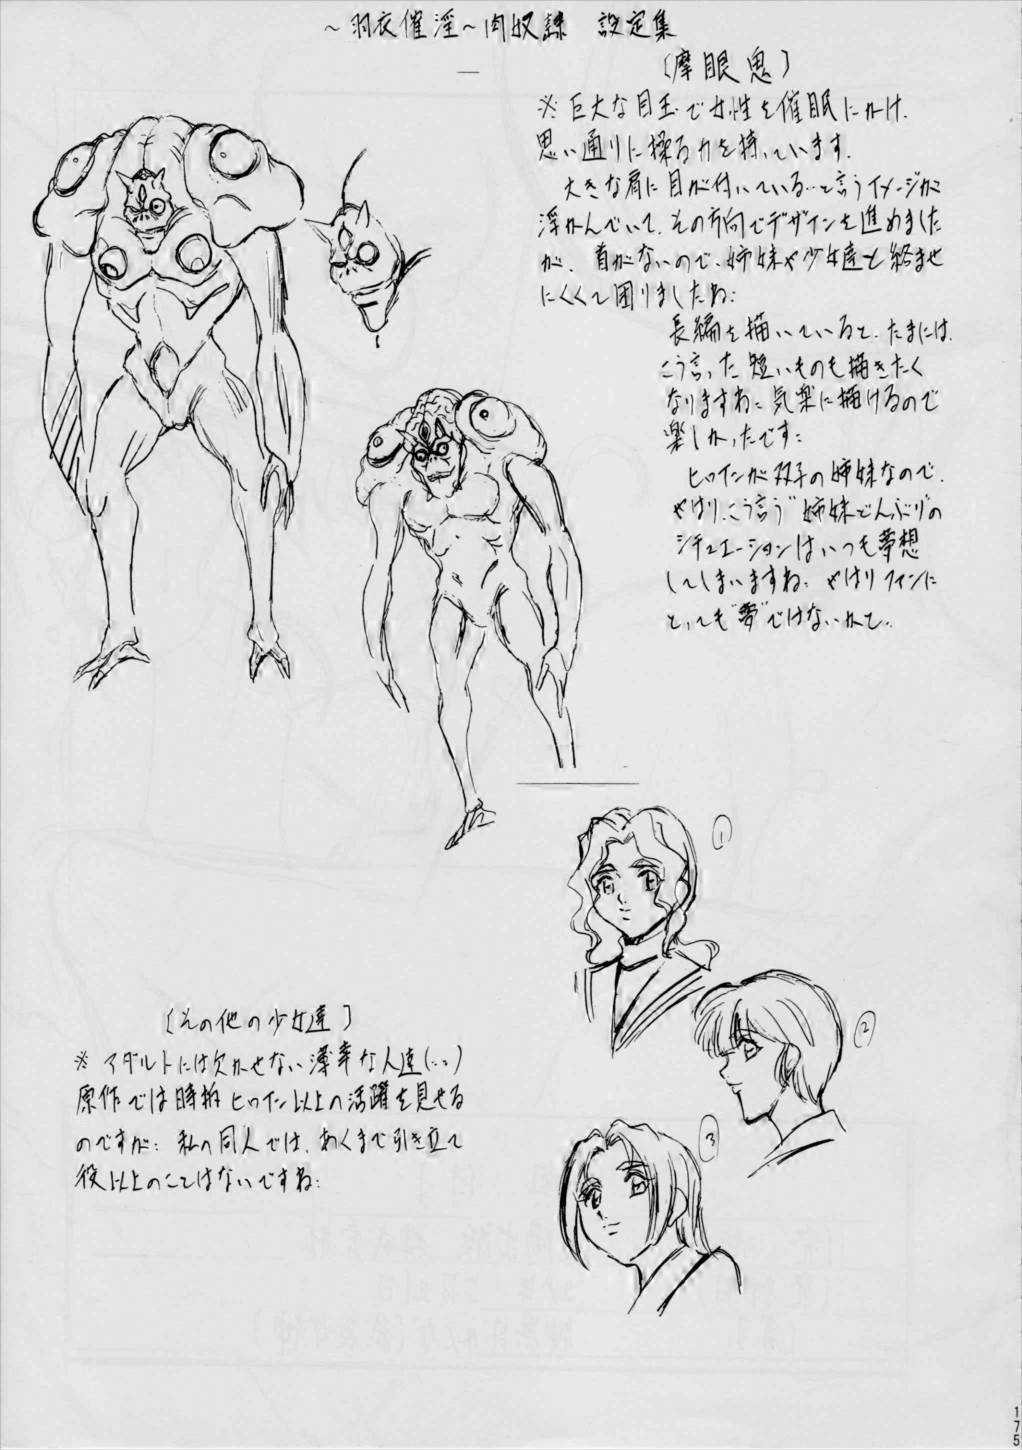 ～羽衣催淫～肉奴隷　設定集
〔摩眼鬼〕
※巨大な目玉で女性を催眠にかけ、
思い通りに操る力を持っています。
大きな肩に目が付いている…と言うイメージが
浮かんでいて、その方向でデザインを進めました
が、首がないので、姉妹や少女達と絡ませ
にくくて困りましたね;
長編を描いていると、たまには、
こう言った短いものも描きたく
なりますね。気楽に描けるので
楽しかったです;
ヒロインが双子の姉妹なので、
やはり、こう言う“姉妹どんぶり”の
シチュエーションはいつも夢想
してしまいますね。やはりファンに
とっても“夢”ではないかと…
①
②
③
〔その他の少女達〕
※アダルトには欠かせない薄幸な人達(;;)
原作では時折ヒロイン以上の活躍を見せる
のですが; 私の同人では、あくまで引き立て
役以上のことはないですね;
175